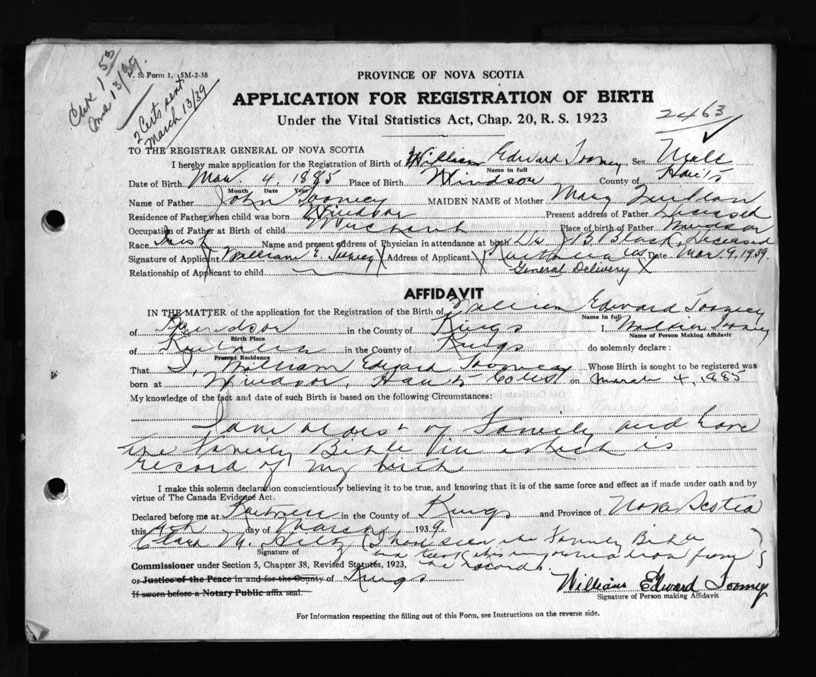 V. S. Form 1. 5M-2-38
2 Certs sent
March 13/39
PROVINCE OF NOVA SCOTIA
APPLICATION FOR REGISTRATION OF BIRTH
Under the Vital Statistics Act, Chap. 20, R. S. 1923
2463
TO THE REGISTRAR GENERAL OF NOVA SCOTIA
I hereby make application for the Registration of Birth of William Edward Toomey Sex Male
Name in full
Date of Birth Mar. 4, 1885 Place of Birth Windsor County of Hants
Month Date Year
Name of Father John Toomey MAIDEN NAME of Mother Mary
Residence of Father when child was born Windsor Present address of Father Deceased
Occupation of Father at Birth of child Merchant Place of birth of Father Windsor
Race Irish Name and present address of Physician in attendance at birth Dr. J B Black, Deceased
Signature of Applicant William E. Toomey Address of Applicant Kentville Date Mar. 9, 1939
Relationship of Applicant to child General Delivery
AFFIDAVIT
IN THE MATTER of the application for the Registration of the Birth of William Edward Toomey
Name in full
of Windsor in the County of Kings I, William Toomey
Birth Place Name of Person Making Affidavit
of Kentville in the County of Kings do solemnly declare:
Present Residence
That I, William Edward Toomey Whose Birth is sought to be registered was
born at Windsor, Hants on March 4, 1885
My knowledge of the fact and date of such Birth is based on the following Circumstances:
I am oldest of Family and have
the Family Bible in which is
record of my birth
I make this solemn declaration conscientiously believing it to be true, and knowing that it is of the same force and effect as if made under oath and by
virtue of The Canada Evidence Act.
Declared before me at Kentville in the County of Kings and Province of Nova Scotia
this 9th day of March 1939.
Clara M. (I have seen the Family Bible
Signature of and took this information from
Commissioner under Section 5, Chapter 38, Revised Statutes, 1923, the records.)
or Justice of the Peace in and for the County of Kings
William Edward Toomey
If sworn before a Notary Public affix seal.
Signature of Person making Affidavit
For Information respecting the filling out of this Form, see Instructions on the reverse side.